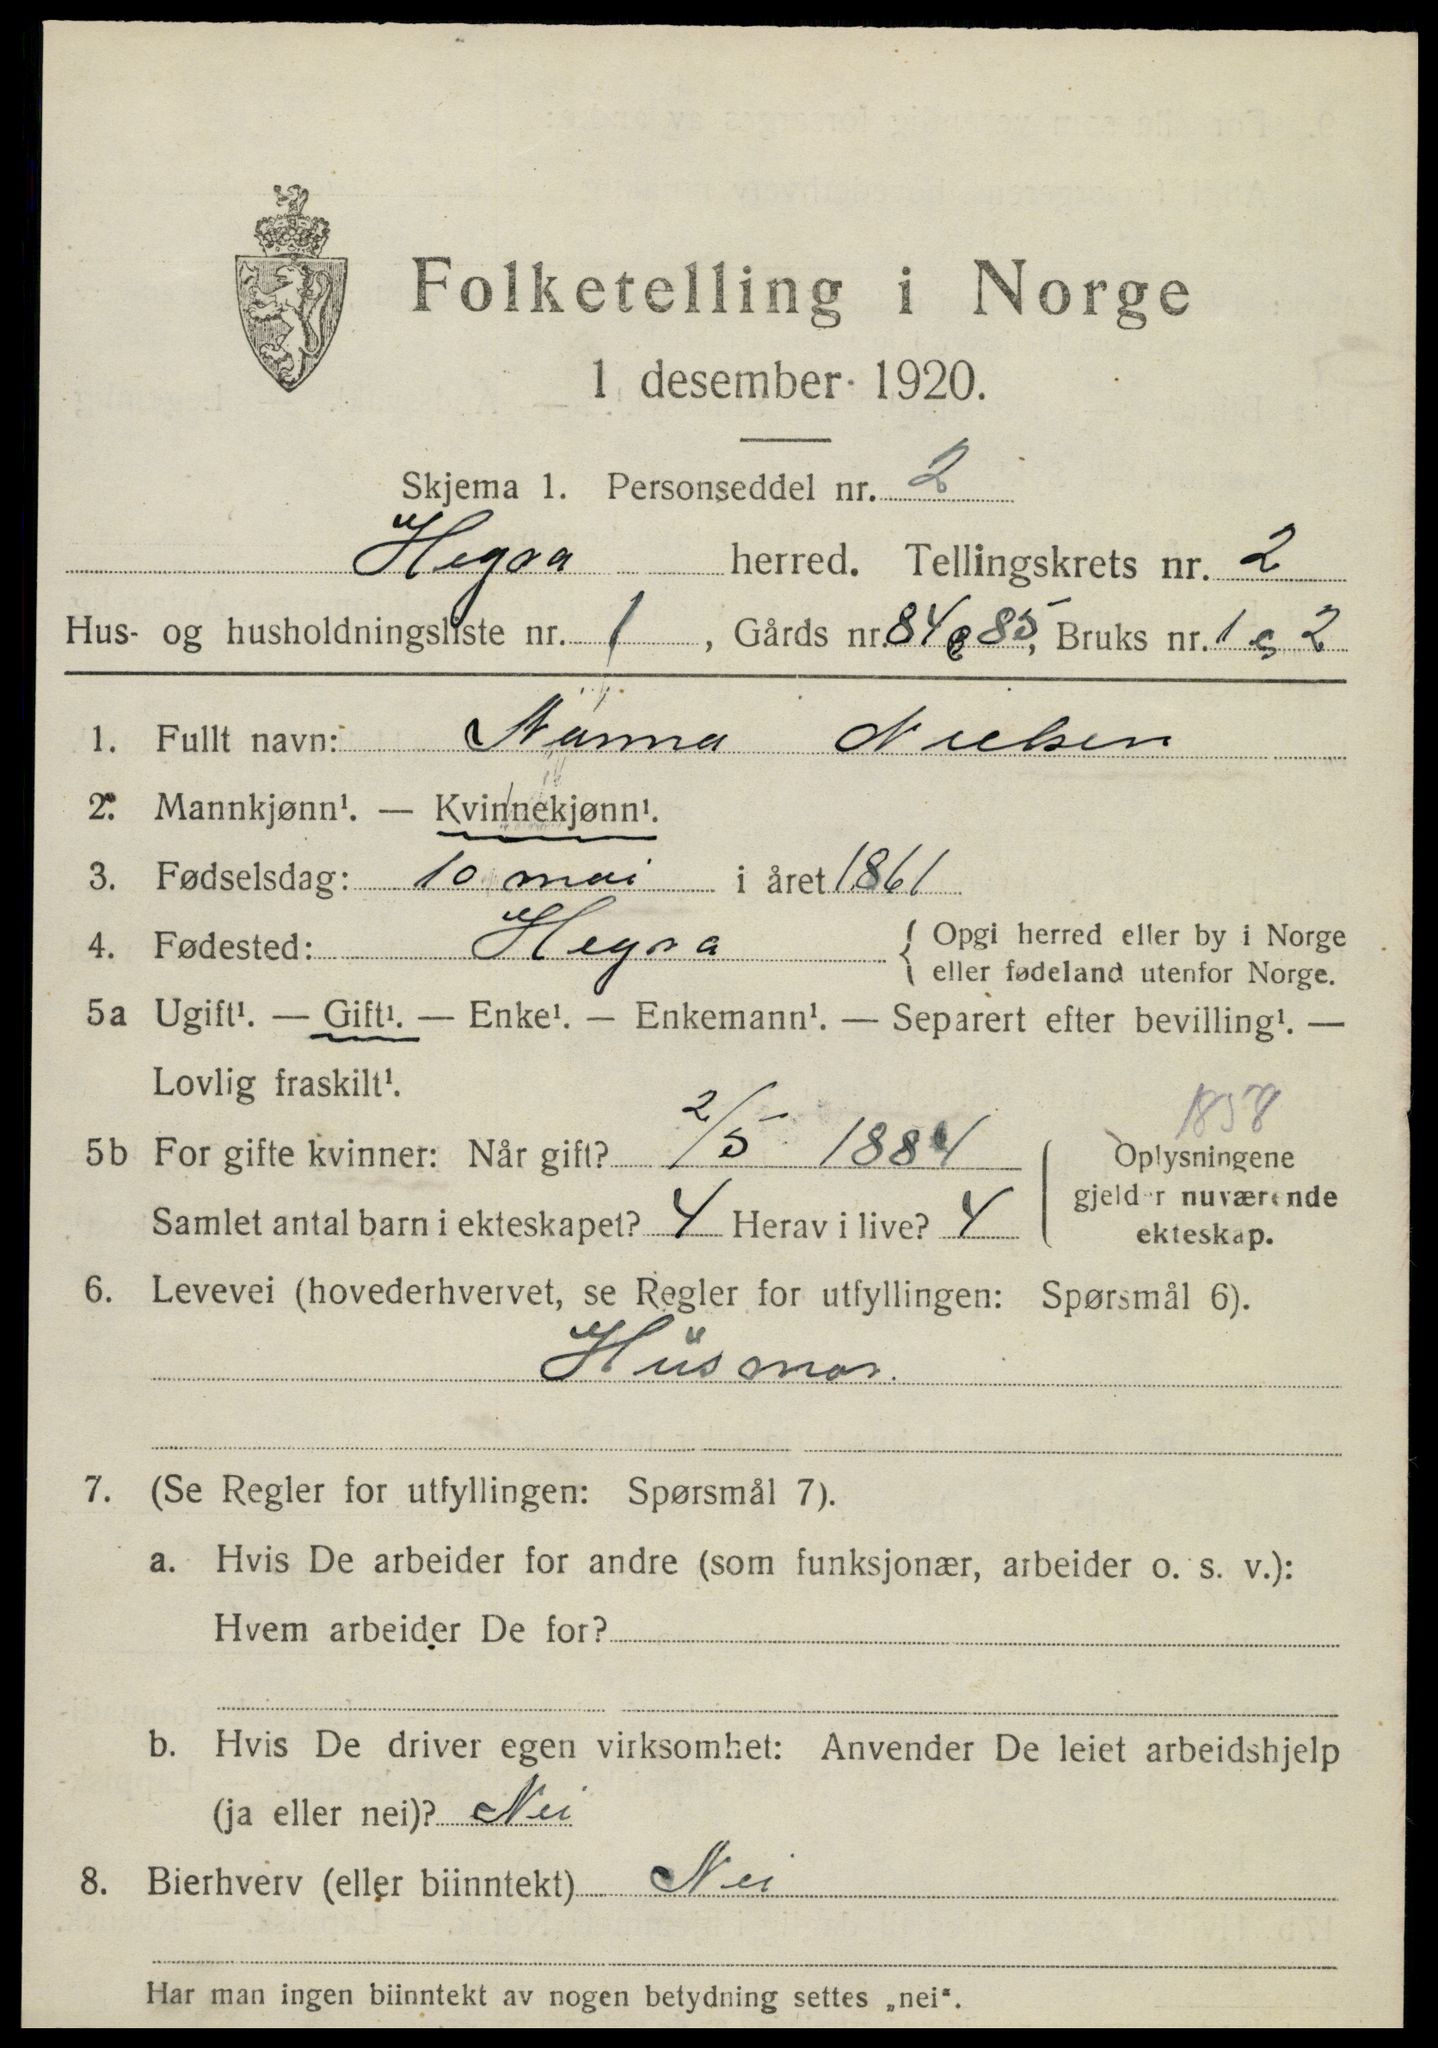 Folketelling i Norge
1 desember 1920.
Skjema 1. Personseddel nr. 2
Hegra herred. Tellingskrets nr. 2
Hus- og husholdningsliste nr. 1, Gårds nr. 84 & 85, Bruks nr. 1 & 2
1. Fullt navn: Nanna Nielsen
2. Mannkjønn¹. — Kvinnekjønn¹.
3. Fødselsdag: 10 mai i året 1861
4. Fødested: Hegra { Opgi herred eller by i Norge
eller fødeland utenfor Norge.
5a Ugift¹. — Gift¹. — Enke¹. — Enkemann¹. — Separert efter bevilling¹. —
Lovlig fraskilt¹.
1858
5b For gifte kvinner: Når gift? 2/5 1884 Oplysningene
gjelder nuværende
Samlet antal barn i ekteskapet? 4 Herav i live? 4
ekteskap.
6. Levevei (hovederhvervet, se Regler for utfyllingen: Spørsmål 6).
Husmor.
7. (Se Regler for utfyllingen: Spørsmål 7).
a. Hvis De arbeider for andre (som funksjonær, arbeider o. s. v.):
Hvem arbeider De for?
b. Hvis De driver egen virksomhet: Anvender De leiet arbeidshjelp
(ja eller nei)? Nei
8. Bierhverv (eller biinntekt) Nei
Har man ingen biinntekt av nogen betydning settes „nei“.